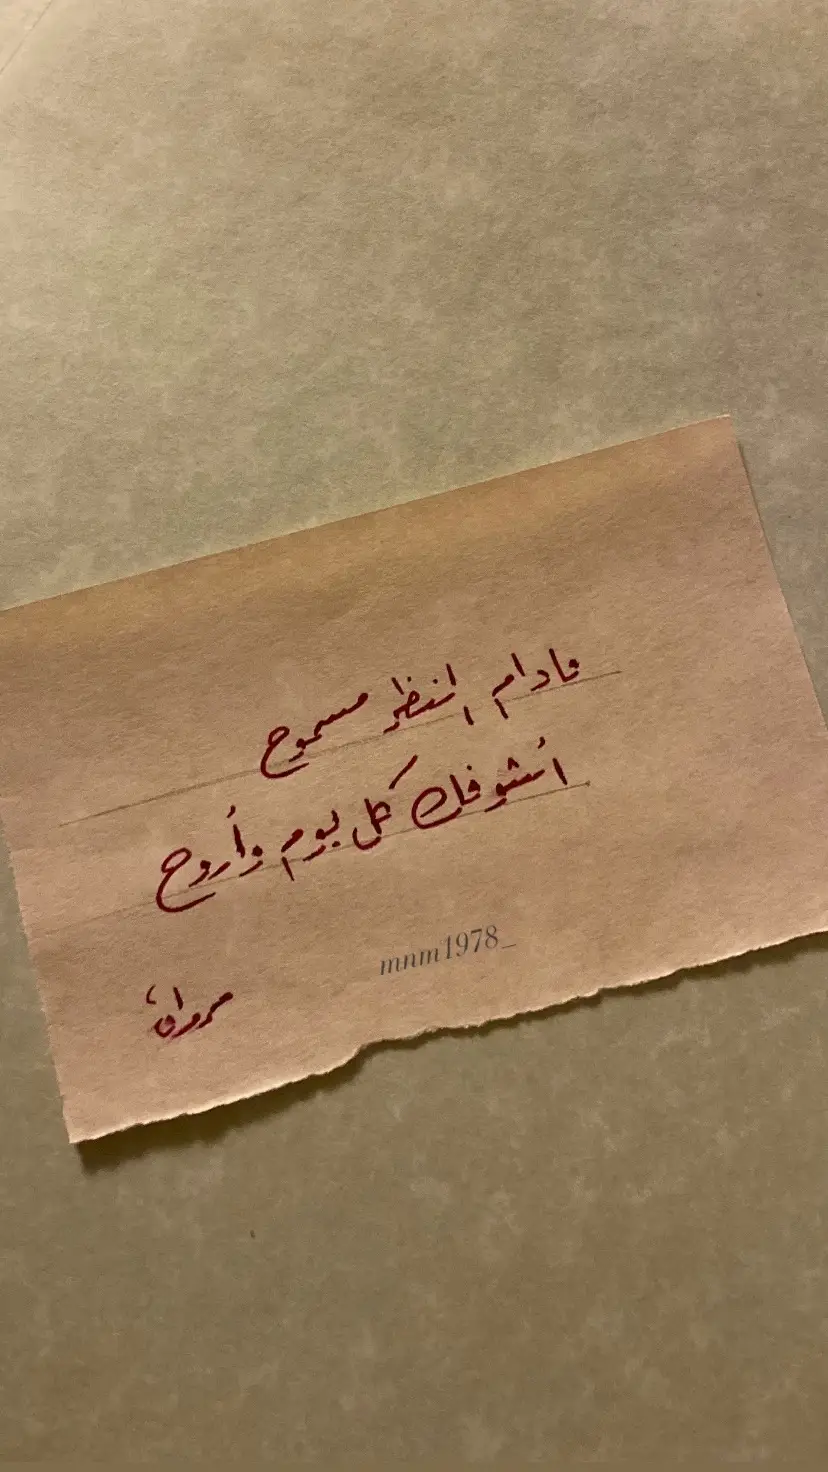 مادام النظر مسموح
أشوفك كل يوم وأروح
mnm1978_
مروان،